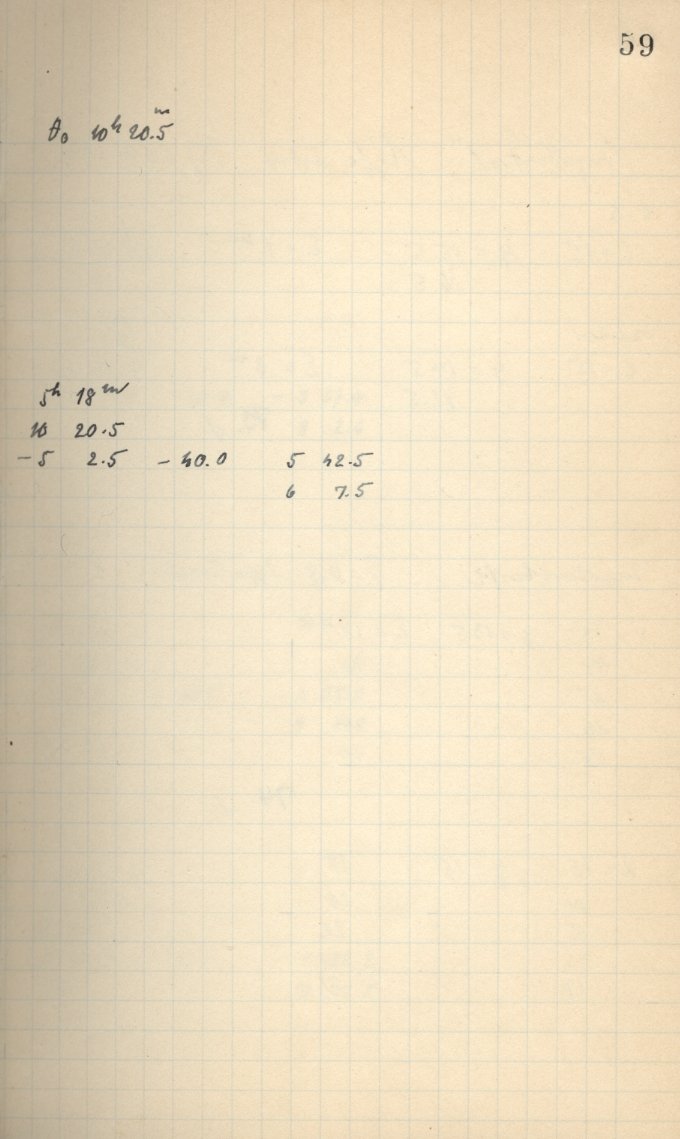 59
θ₀ 10ʰ 20.5ᵐ
5ʰ 18ᵐ
10 20.5
-5 2.5 -40.0 5 42.5
6 7.5